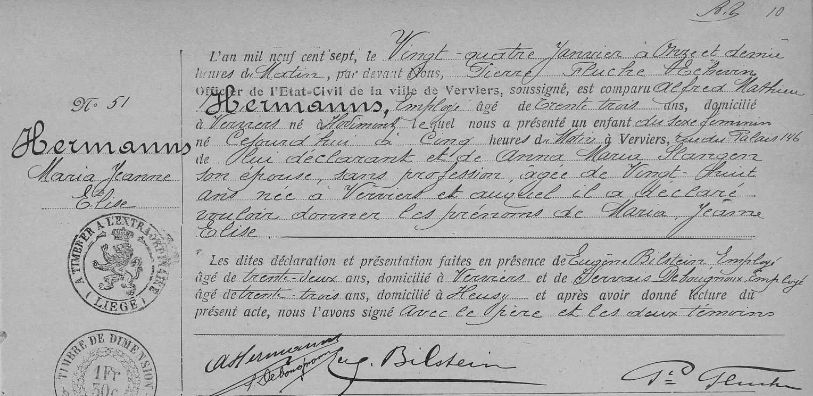 10
L'an mil neuf cent sept, le Vingt-quatre Janvier à Onze et demie
heures du Matin, par devant Nous, Pierre Fluche Echevin
Officier de l'Etat-Civil de la ville de Verviers, soussigné, est comparu Alfred Mathieu
Hermanns, Employé âgé de Trente trois ans, domicilié
à Verviers né à Hodimont, lequel nous a présenté un enfant du sexe féminin
né Cejourd'hui à Cinq heures du Matin à Verviers, rue du Palais 146
de Lui déclarant et de Anna Maria Slangen
son épouse, sans profession, agée de Vingt-huit
ans née à Verviers et auquel il a déclaré
vouloir donner les prénoms de Maria Jeanne
Elise
Les dites déclaration et présentation faites en présence de Eugène Bilstein Employé
âgé de trente-deux ans, domicilié à Verviers et de Gervais Debougnoux Employé
âgé de trente-trois ans, domicilié à Heusy et après avoir donné lecture du
présent acte, nous l'avons signé avec le père et les deux témoins
N° 51
Hermanns
Maria Jeanne
Elise
A TIMBRER A L'EXTRAORDINAIRE
(LIÉGE)
TIMBRE DE DIMENSION
1 Fr
30c
AHermanns
Eug. Bilstein